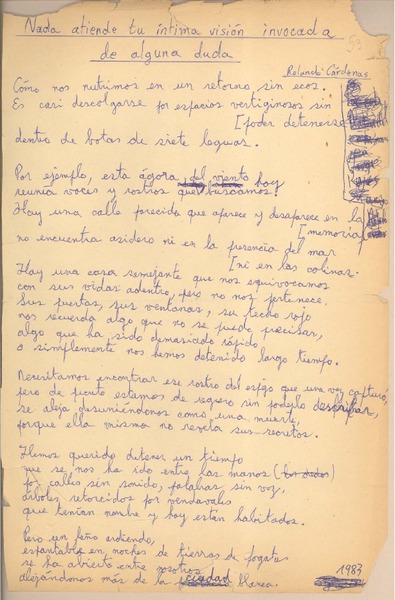 Nada atiende tu íntima visión invocada
de alguna duda
Rolando Cárdenas
Cómo nos nutrimos en un retorno sin ecos.
Es casi descolgarse por espacios vertiginosos sin
[poder detenerse
dentro de botas de siete leguas.
Por ejemplo, esta ágora del viento hoy
reunía voces y rostros que buscamos.
Hay una calle parecida que aparece y desaparece en la
[memoria
no encuentra asidero ni en la presencia del mar
[ni en las colinas.
Hay una casa semejante que nos equivocamos
con sus vidas adentro, pero no nos pertenece.
Sus puertas, sus ventanas, su techo rojo
nos recuerda algo que no se puede precisar,
algo que ha sido demasiado rápido
o simplemente nos hemos detenido largo tiempo.
Necesitamos encontrar ese rostro del espejo que una vez capturó,
pero de pronto estamos de regreso sin poderlo descifrar,
se aleja desuniéndonos como una muerte,
porque ella misma no revela sus secretos.
Hemos querido detener un tiempo
que se nos ha ido entre las manos (los dedos)
por calles sin sonido, palabras sin voz,
árboles retorcidos por vendavales
que tenían nombre y hoy están habitados.
Pero un leño ardiendo,
espantable en noches de tierras de fogatas
se ha abierto entre nosotros
alejándonos más de la ciudad llarea.
1983